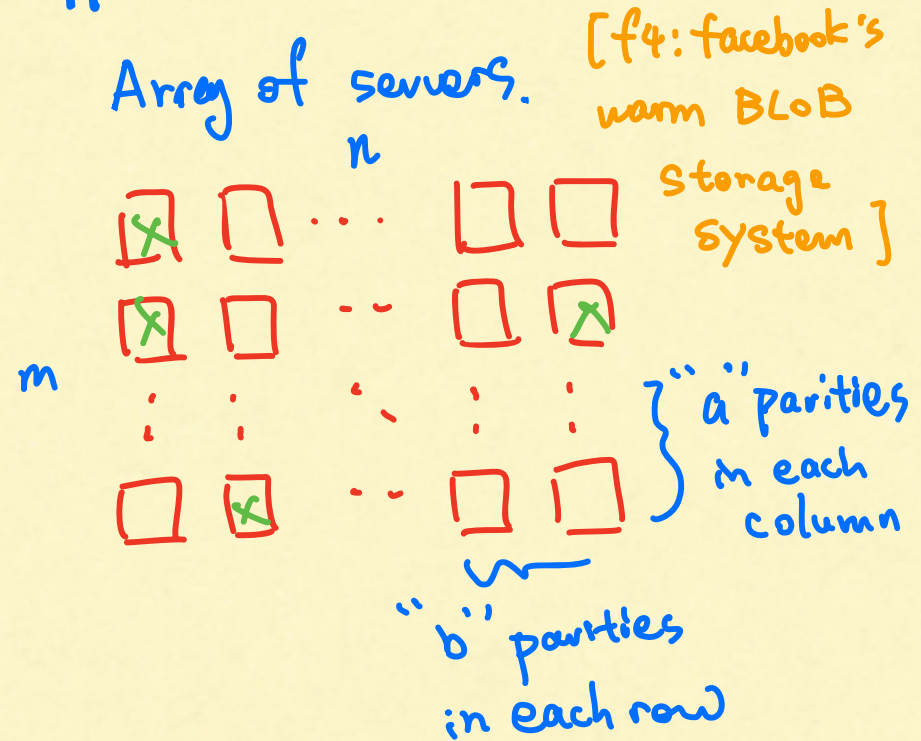 Array of servers.
n
[f4: facebook's
warm BLOB
storage
system]
m
"a" parities
in each
column
"b" parities
in each row